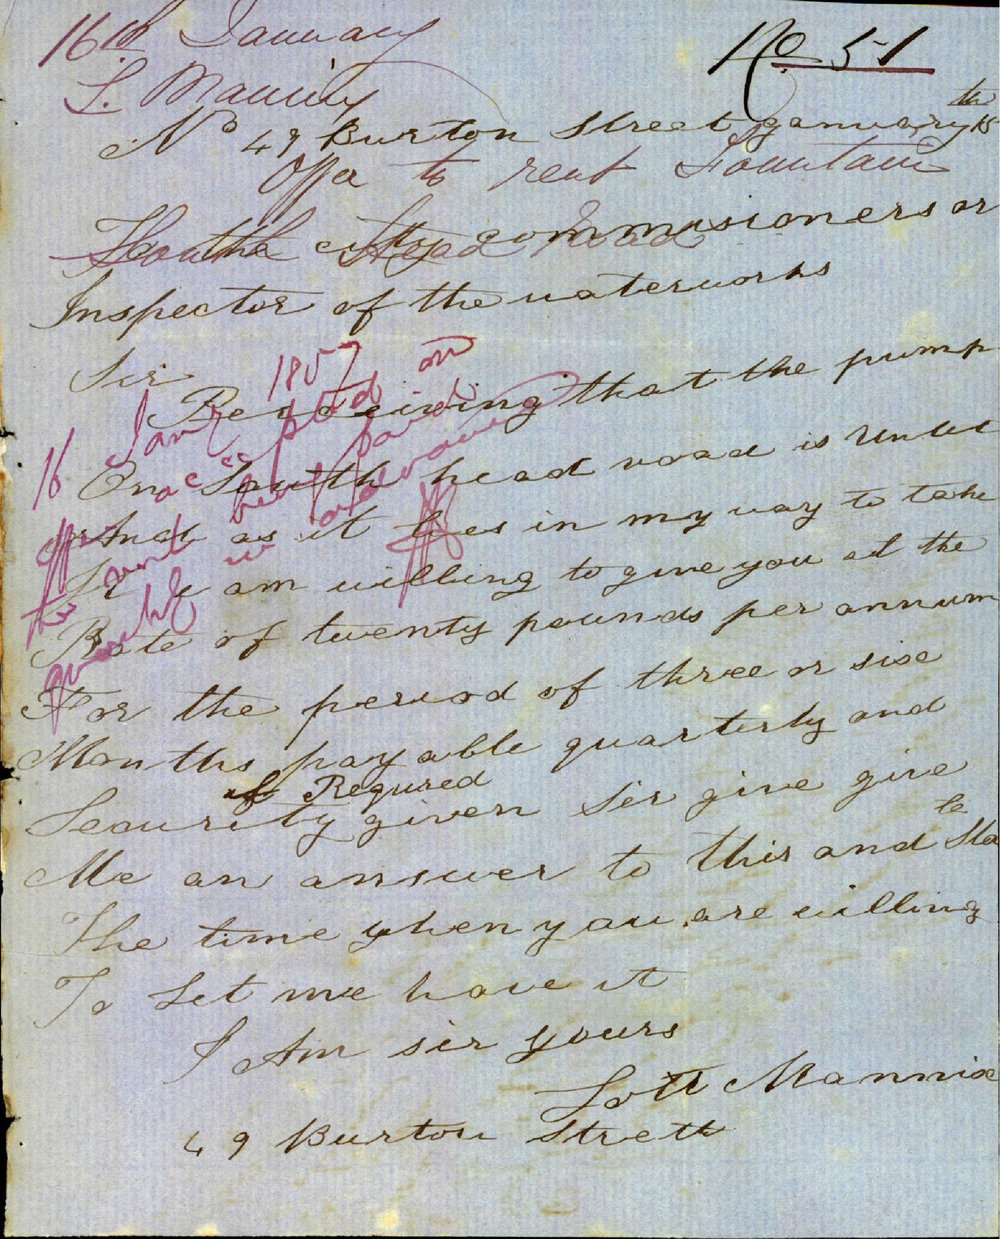 16th January
No. 51
L. Manning
No 49 Burton Street January 15th
Offer to rent Fountain
South Head Road
To the city commisioners or
Inspector of the waterworks
Sir
Perceiving that the pump
On South head road is Unlet
And as it lies in my way to take
It I am willing to give you at the
Rate of twenty pounds per annum
For the period of three or six
Months payable quarterly and
if Requred
Security given Sir give give
Me an answer to this and State
The time when you are willing
To Let me have it
I Am sir yours
Lott Mannix
49 Burton Strett
16 Jany 1857
offer accepted on
the rent being paid
quarterly in advance